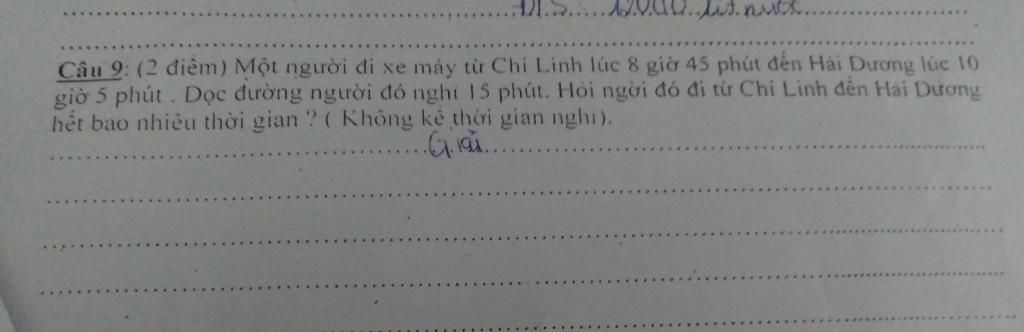 Đ/S: 12000 lít nước
Câu 9: (2 điểm) Một người đi xe máy từ Chí Linh lúc 8 giờ 45 phút đến Hải Dương lúc 10
giờ 5 phút . Dọc đường người đó nghỉ 15 phút. Hỏi ngời đó đi từ Chí Linh đến Hải Dương
hết bao nhiêu thời gian ? ( Không kể thời gian nghỉ).
Giải